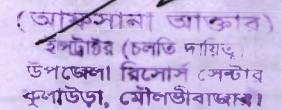 (আফসানা আক্তার)
ইন্সট্রাক্টর (চলতি দায়িত্ব)
উপজেলা রিসোর্স সেন্টার
কুলাউড়া, মৌলভীবাজার।